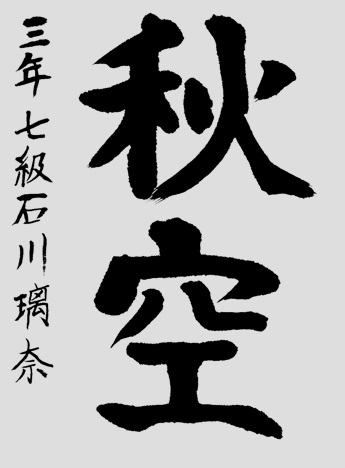 秋空
三年七級石川璃奈